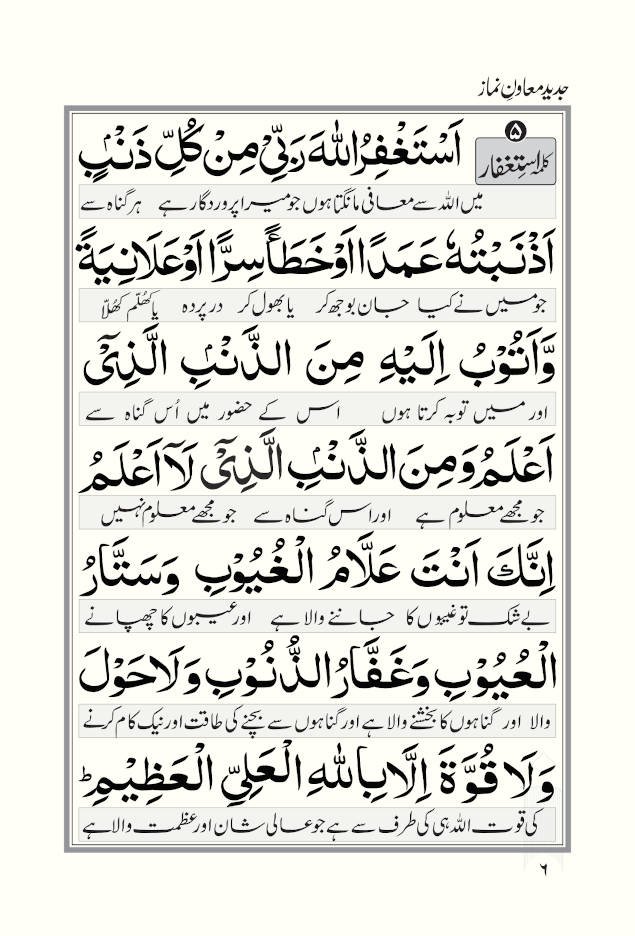 جدید معاونِ نماز
۵
کلمہ استغفار
اَسْتَغْفِرُ اللّٰهَ رَبِّیْ مِنْ كُلِّ ذَنْۢبٍ
میں اللہ سے معافی مانگتا ہوں جو میرا پروردگار ہے ہر گناہ سے
اَذْنَبْتُهٗ عَمَدًا اَوْ خَطَأً سِرًّا اَوْ عَلَانِيَةً
جو میں نے کیا جان بوجھ کر یا بھول کر در پردہ یا کھُلّم کھُلّا
وَّاَتُوْبُ اِلَيْهِ مِنَ الذَّنْۢبِ الَّذِيْٓ
اور میں توبہ کرتا ہوں اس کے حضور میں اُس گناہ سے
اَعْلَمُ وَمِنَ الذَّنْۢبِ الَّذِيْٓ لَآ اَعْلَمُ
جو مجھے معلوم ہے اور اس گناہ سے جو مجھے معلوم نہیں
اِنَّكَ اَنْتَ عَلَّامُ الْغُيُوْبِ وَسَتَّارُ
بے شک تو غیبوں کا جاننے والا ہے اور عیبوں کا چھپانے
الْعُيُوْبِ وَغَفَّارُ الذُّنُوْبِ وَلَا حَوْلَ
والا اور گناہوں کا بخشنے والا ہے اور گناہوں سے بچنے کی طاقت اور نیک کام کرنے
وَلَا قُوَّةَ اِلَّا بِاللّٰهِ الْعَلِيِّ الْعَظِيْمِ ؕ
کی قوت اللہ ہی کی طرف سے ہے جو عالی شان اور عظمت والا ہے
۶